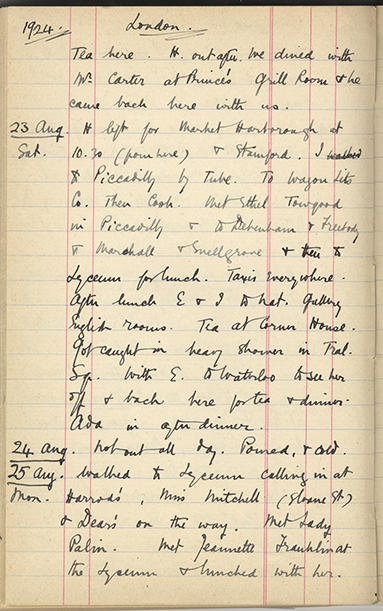 1924. London.
Tea here. H. out after. We dined with
Mr Carter at Prince's Grill Room & he
came back here with us.
23 Aug. H left for Market Harborough at
Sat. 10.30 (from here) & Stamford. I walked
to Piccadilly by Tube. To Wagon Lits
Co. Then Cook. Met Ethel Towgood
in Piccadilly & to Debenham & Freebody
& Marshall & Snellgrove & then to
Lyceum for lunch. Taxis everywhere.
After lunch E & I to Nat. Gallery
English rooms. Tea at Corner House.
Got caught in heavy shower in Traf.
Sq. With E. to Waterloo to see her
off & back here for tea & dinner.
Ada in after dinner.
24 Aug. Not out all day. Poured, & cold.
25 Aug. Walked to Lyceum calling in at
Mon. Harrods', Miss Mitchell (Sloane St)
& Dear's on the way. Met Lady
Palin. Met Jeannette Franklin at
the Lyceum & lunched with her.